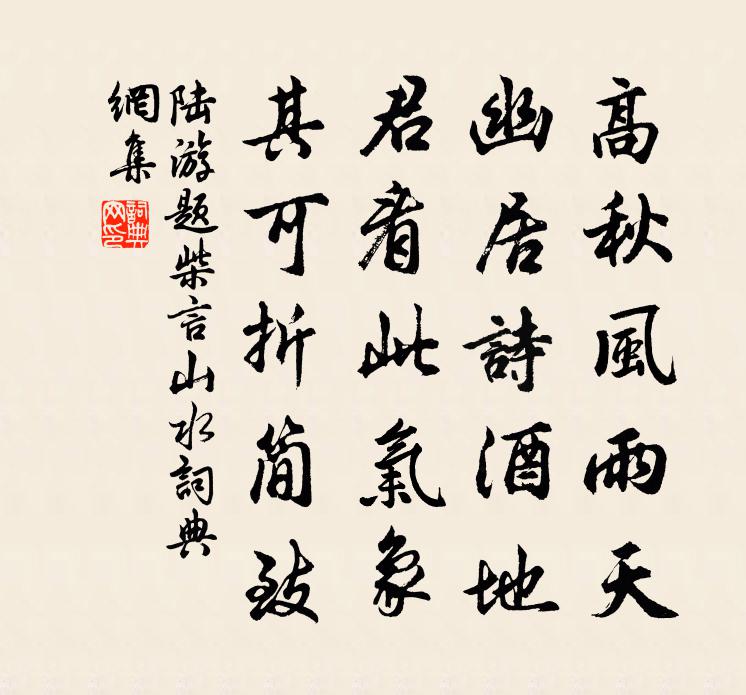 高秋風雨天
幽居詩酒地
君看此氣象
其可折简致
陆游题柴言山水詞典
網集
詞典
网印